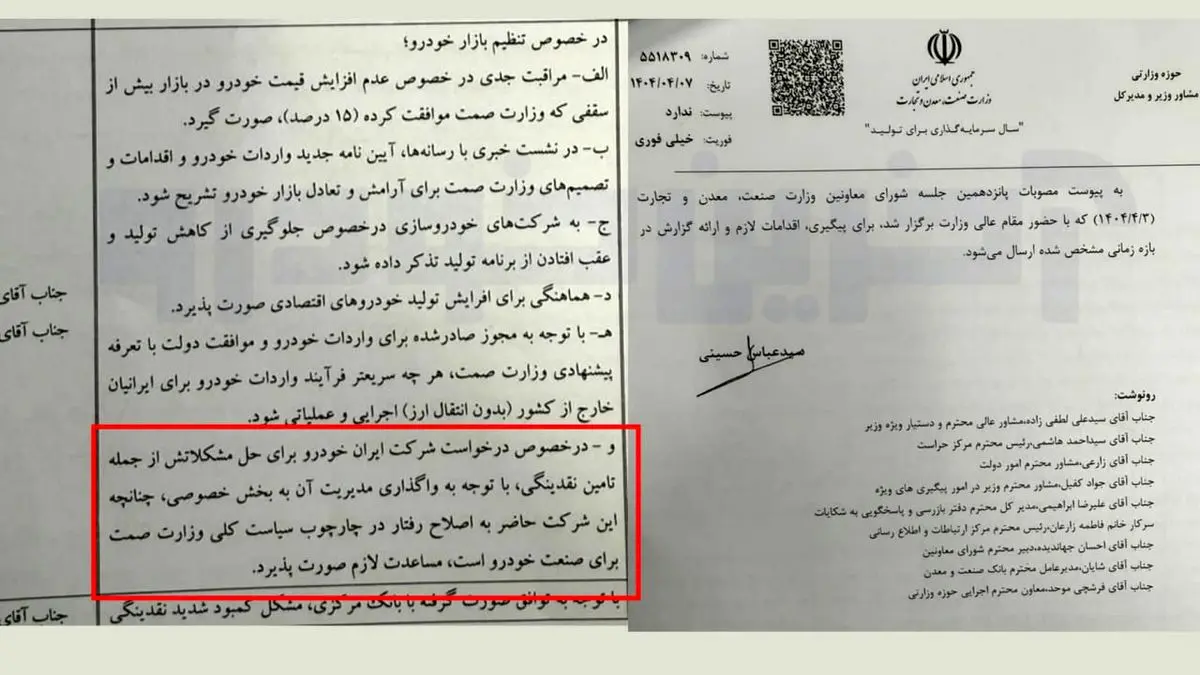 جمهوری اسلامی ایران
وزارت صنعت، معدن و تجارت
"سال سرمایه‌گذاری برای تولید"
شماره: ۵۵۱۸۳۰۹
تاریخ: ۱۴۰۴/۰۴/۰۷
پیوست: ندارد
فوریت: خیلی فوری
حوزه وزارتی
مشاور وزیر و مدیرکل
به پیوست مصوبات پانزدهمین جلسه شورای معاونین وزارت صنعت، معدن و تجارت
(۱۴۰۴/۴/۳) که با حضور مقام عالی وزارت برگزار شد، برای پیگیری، اقدامات لازم و ارائه گزارش در
بازه زمانی مشخص شده ارسال می‌شود.
سیدعباس حسینی
رونوشت:
جناب آقای سیدعلی لطفی زاده،مشاور عالی محترم و دستیار ویژه وزیر
جناب آقای سیداحمد هاشمی،رئیس محترم مرکز حراست
جناب آقای زارعی،مشاور محترم امور دولت
جناب آقای جواد کفیل،مشاور محترم وزیر در امور پیگیری های ویژه
جناب آقای علیرضا ابراهیمی،مدیر کل محترم دفتر بازرسی و پاسخگویی به شکایات
سرکار خانم فاطمه زارعان،رئیس محترم مرکز ارتباطات و اطلاع رسانی
جناب آقای احسان جهاندیده،دبیر محترم شورای معاونین
جناب آقای شایان،مدیرعامل محترم بانک صنعت و معدن
جناب آقای فرشچی موحد،معاون محترم اجرایی حوزه وزارتی
در خصوص تنظیم بازار خودرو؛
الف- مراقبت جدی در خصوص عدم افزایش قیمت خودرو در بازار بیش از
سقفی که وزارت صمت موافقت کرده (۱۵ درصد)، صورت گیرد.
ب- در نشست خبری با رسانه‌ها، آیین نامه جدید واردات خودرو و اقدامات و
تصمیم‌های وزارت صمت برای آرامش و تعادل بازار خودرو تشریح شود.
ج- به شرکت‌های خودروسازی درخصوص جلوگیری از کاهش تولید و
عقب افتادن از برنامه تولید تذکر داده شود.
د- هماهنگی برای افزایش تولید خودروهای اقتصادی صورت پذیرد.
هـ- با توجه به مجوز صادرشده برای واردات خودرو و موافقت دولت با تعرفه
پیشنهادی وزارت صمت، هر چه سریعتر فرآیند واردات خودرو برای ایرانیان
خارج از کشور (بدون انتقال ارز) اجرایی و عملیاتی شود.
و - درخصوص درخواست شرکت ایران خودرو برای حل مشکلاتش از جمله
تامین نقدینگی، با توجه به واگذاری مدیریت آن به بخش خصوصی، چنانچه
این شرکت حاضر به اصلاح رفتار در چارچوب سیاست کلی وزارت صمت
برای صنعت خودرو است، مساعدت لازم صورت پذیرد.
با توجه به توافق صورت گرفته با بانک مرکزی، مشکل کمبود شدید نقدینگی
جناب آقای
جناب آقای
جناب آقای